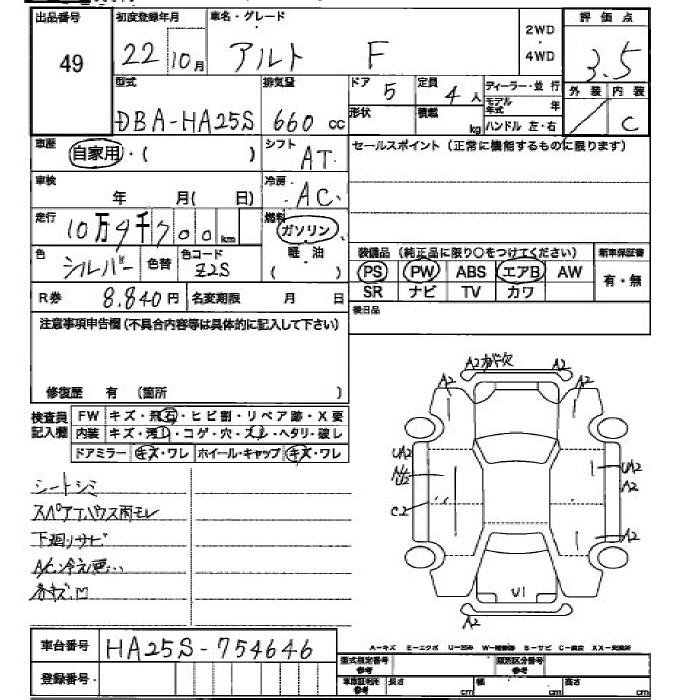 出品番号 初度登録年月 車名・グレード 2WD ・ 4WD 評価点
49 22 10月 アルト F 3.5
型式 排気量 ドア 5 定員 4人 ディーラー・並 行 外装 内装
DBA-HA25S 660 cc 形状 積載 kg モデル年式 年 C
ハンドル 左・右
車歴 自家用・( ) シフト AT セールスポイント(正常に機能するものに限ります)
車検 年 月( 日) 冷房 AC
走行 10万9千700km 燃料 ガソリン
色 シルバー 色替 色コード Z2S 軽油 ( ) 装備品(純正品に限り○をつけてください) 新車保証書
PS PW ABS エアB AW 有・無
R券 8.840円 名変期限 月 日 SR ナビ TV カワ
注意事項申告欄(不具合内容等は具体的に記入して下さい) 後日品
修復歴 有 (箇所 )
検査員記入欄 FW キズ・飛石・ヒビ割・リペア跡・X要
内装 キズ・汚レ・コゲ・穴・スレ・ヘタリ・破レ
ドアミラー キズ・ワレ ホイール・キャップ キズ・ワレ
A2 A2
A2 A2
UA2 UA2
A2
C2 A2
U1
A2
シートシミ
スペアTハウス雨モレ
下廻リサビ
A/C冷え悪...
各キズ凹
車台番号 HA25S-754646
A-キズ E-エクボ U-凹み W-補修跡 S-サビ C-腐食 XX-交換済
登録番号 型式指定番号 参考 類別区分番号 参考
車庫証明用 参考 長さ cm 幅 cm 高さ cm